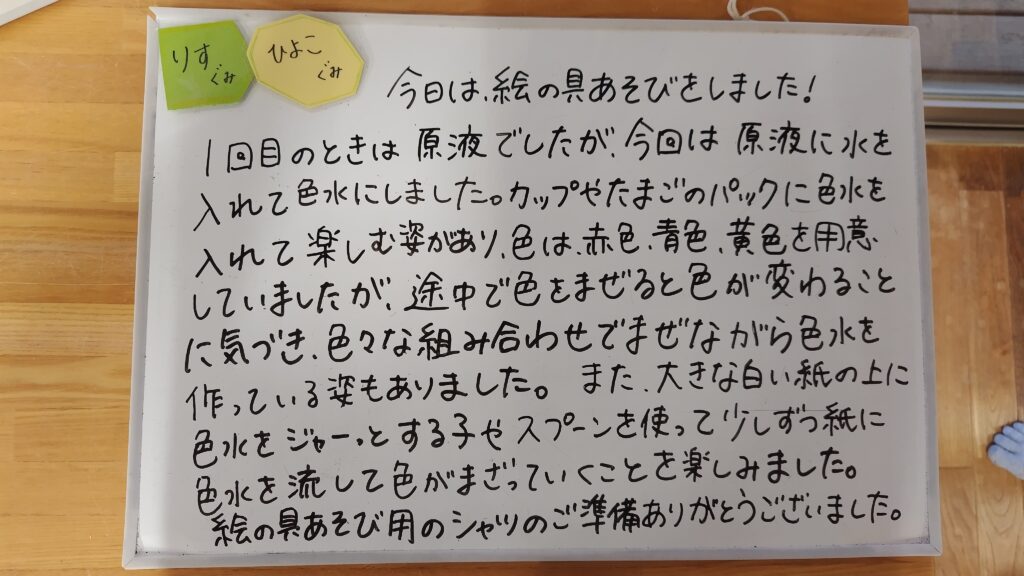 りす
ぐみ
ひよこ
ぐみ
今日は、絵の具あそびをしました!
1回目のときは 原液でしたが、今回は 原液に水を
入れて色水にしました。カップやたまごのパックに色水を
入れて楽しむ姿があり、色は、赤色、青色、黄色を用意
していましたが、途中で色をまぜると色が変わること
に気づき、色々な組み合わせでまぜながら色水を
作っている姿もありました。 また、大きな白い紙の上に
色水をジャーっとする子やスプーンを使って少しずつ紙に
色水を流して色がまざっていくことを楽しみました。
絵の具あそび用のシャツのご準備ありがとうございました。